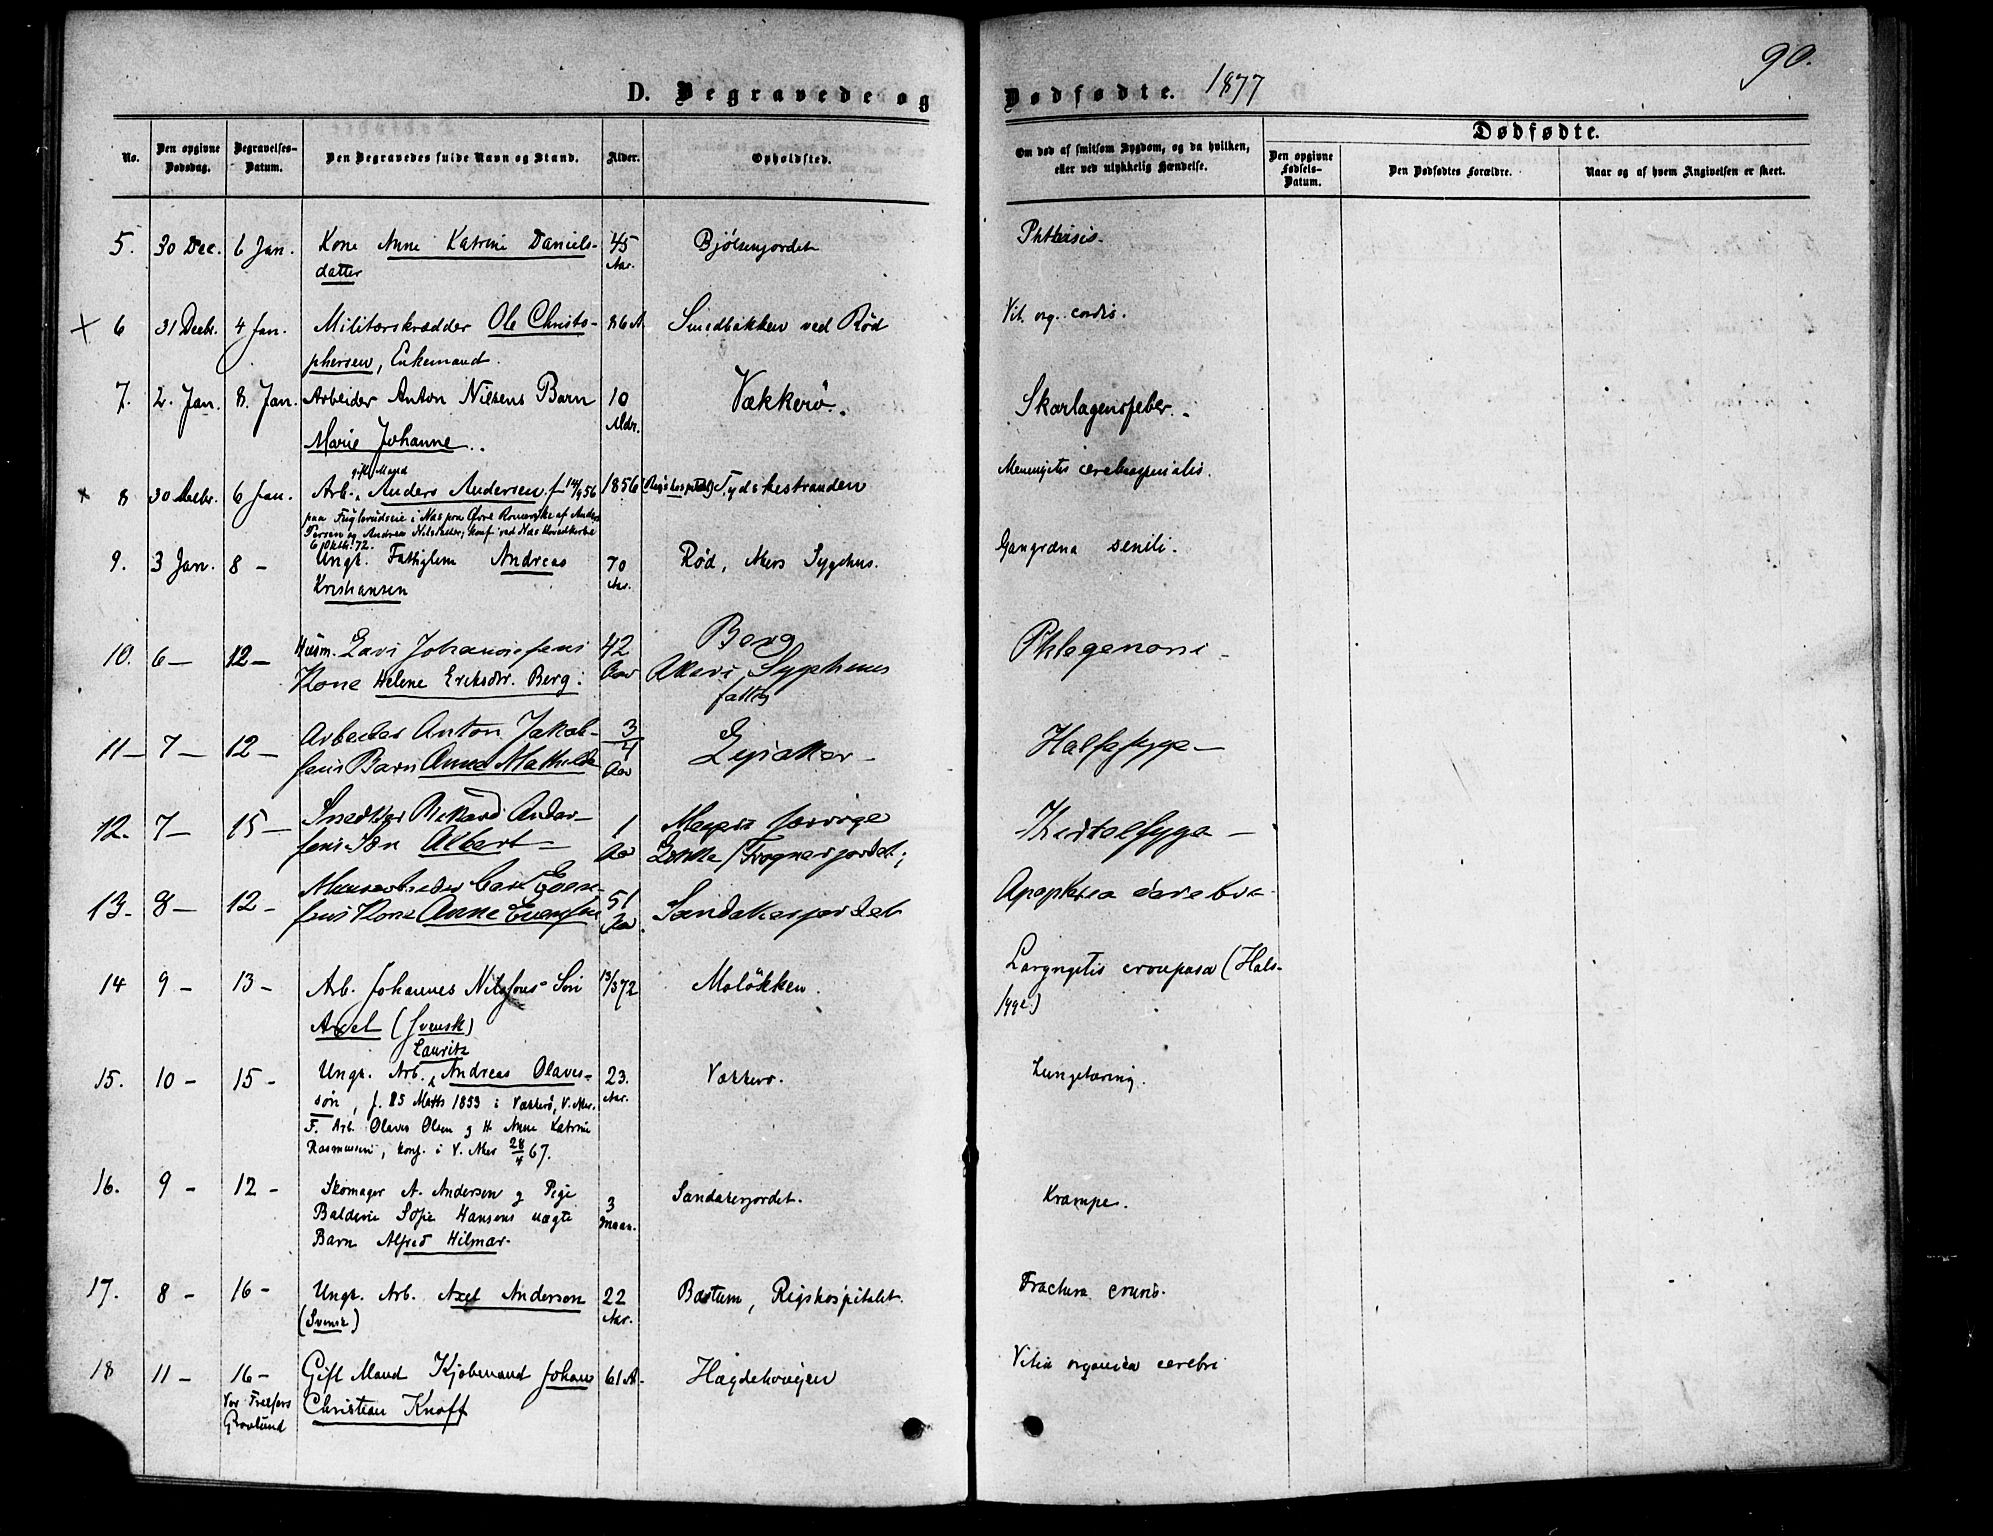 90.
D. Begravede og Dødfødte. 1877
No.
Den opgivne Dødsdag.
Begravelses-Datum.
Den Begravedes fulde Navn og Stand.
Alder.
Opholdsted.
Om død af smitsom Sygdom, og da hvilken, eller ved ulykkelig Hændelse.
Dødfødte.
Den opgivne Fødsels-Datum.
Den Dødfødtes Forældre.
Naar og af hvem Angivelsen er skeet.
5. 30 Dec. 6 Jan. Kone Anne Katrine Daniels- 45 Bjölsenjordet Phthisis.
datter Aar.
6 31 Decbr. 4 Jan. Militærskrædder Ole Christo- 86 A Smedbakken ved Rød Vit. org. cordis.
phersen, Enkemand.
7. 2. Jan. 8. Jan. Arbeider Anton Nilsens Barn 10 Vækkerö. Skarlagensfeber.
Marie Johanne Mdr.
gift Mand
8 30 Decbr. 6 Jan. Arb. Anders Andersen f 14/9 56 1856 (Rigshospitalet) Tydskestranden Meningitis cerebrospinalis.
paa i Næs paa Øvre Romerike af Anders
og Andrea Nilsdatter, konf ved Næs Hovedkirke
6 Oktbr. 72.
9. 3 Jan. 8 - Ungk. Fattiglem Andreas 70 Rød, Akers Sygehus. Gangræna senili.
Kristiansen Aar.
10. 6 - 12 - Husm. Lars Johannesens 42 Berg Phlegmone
Kone Helene Eriksdr. Berg. Aar Akers Sygehuus
fattig
11 - 7 - 12 - Arbeider Anton Jakob- 3/4 Halsesyge -
sens Barn Anna Mathilde Aar
12. 7 - 15 - Snedker Rikard Ander- 1 Kirtelsyge -
sens Søn Albert - Aar Løkke /Frognerjordet;
13 - 8 - 12 - Murarbeider Carl Even- 51 Apoplexia cerebri
sens Kone Anne Evensen Aar. Sandakerjordet
14 9 - 13 - Arb. Johannes Nilssons Sön 13/3 72 Molökken. Laryngitis crouposa (Hals-
Axel (svensk) syge.)
Lauritz
15. 10 - 15 - Ungk. Arb. Andreas Olaves- 23. Vækkerö. Lungetæring.
søn, f. 25 Marts 1853 i Vækkerö, V. Aker. Aar.
F. Arb. Olaves Olsen og H Anne Katrine
Rasmussen, konf. i V. Aker 28/4 67.
16. 9 - 12 - Skomager A. Andersen og Pige 3 Sandakerjordet. Krampe.
Balderie Sofie Hansens uægte Maan.
Barn Alfred Hilmar.
17. 8 - 16 - Ungk. Arb. Axel Anderson 22 Bastum, Rigshospitalet. Fractura cruris.
(Svensk) Aar.
18 11 - 16 - Gift Mand Kjøbmand Johan 61 A - Hægdehougen Vitia organica cerebri
Vor Frelsers Christian Knoff
Gravlund